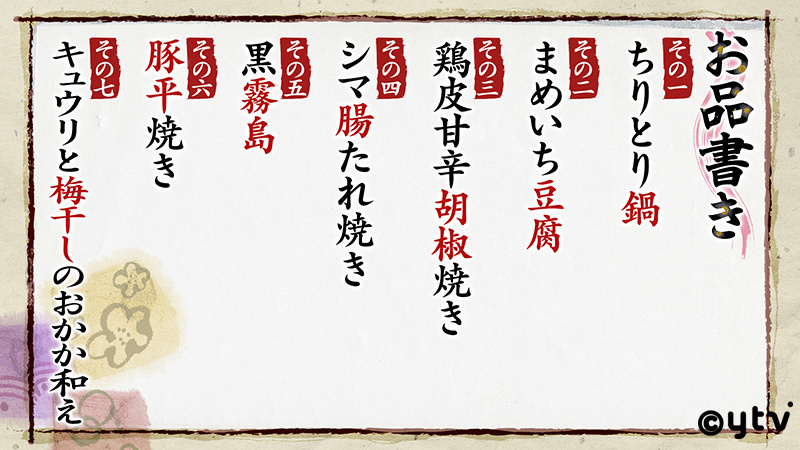 お品書き
その一
ちりとり鍋
その二
まめいち豆腐
その三
鶏皮甘辛胡椒焼き
その四
シマ腸たれ焼き
その五
黒霧島
その六
豚平焼き
その七
キュウリと梅干しのおかか和え
©ytv